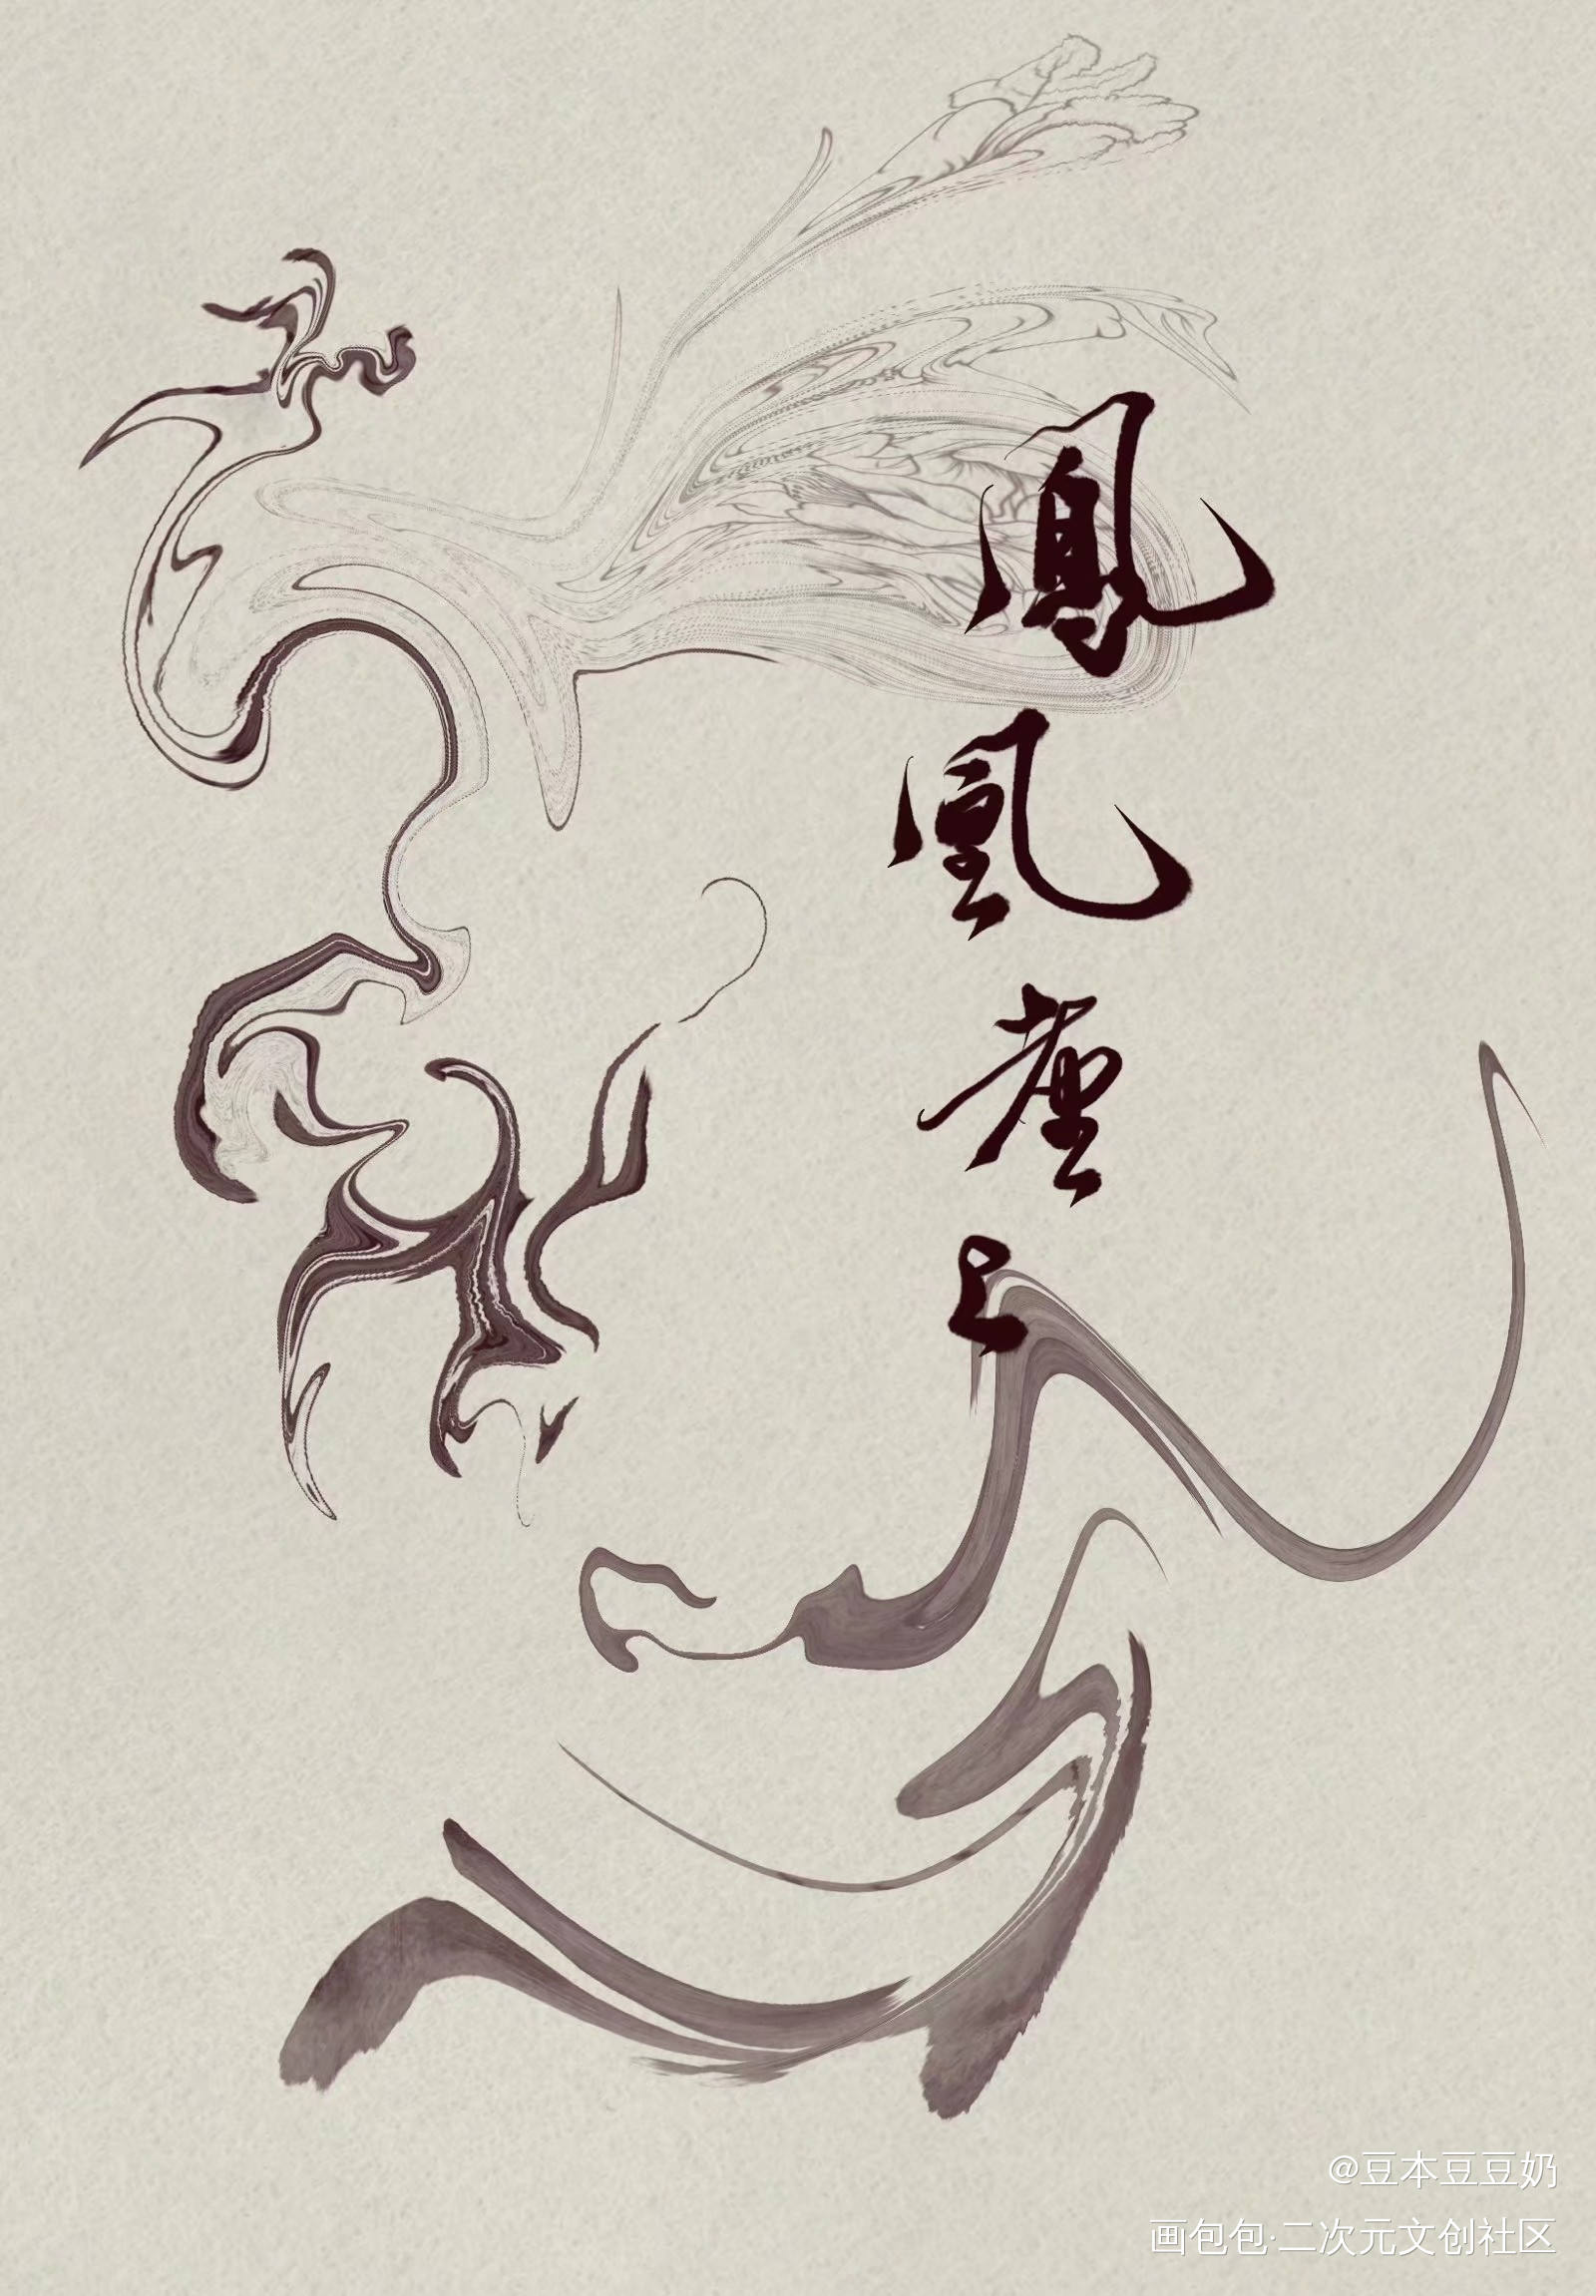 鳳凰臺上
@豆本豆豆奶
画包包·二次元文创社区